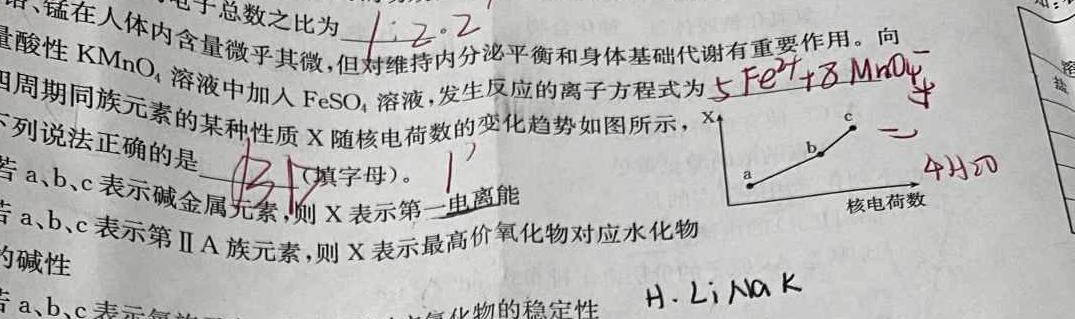 电子总数之比为 1:2.2
、锰在人体内含量微乎其微,但对维持内分泌平衡和身体基础代谢有重要作用。向
酸性 KMnO₄ 溶液中加入 FeSO₄ 溶液,发生反应的离子方程式为 5Fe²⁺+8MnO₄⁻
周期同族元素的某种性质 X 随核电荷数的变化趋势如图所示,
列说法正确的是 (填字母)。
X
a
b
c
核电荷数
4H₂O
若 a、b、c 表示碱金属元素,则 X 表示第一电离能
a、b、c 表示第ⅡA 族元素,则 X 表示最高价氧化物对应水化物
的碱性
a、b、c 表示 氢化物的稳定性
H. Li Na K